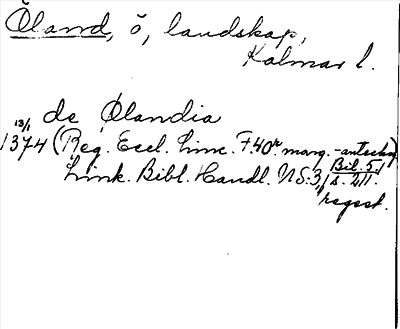 Öland, ö, landskap,
Kalmar l.
de Ølandia
13/1
1374 (Reg. Eccl. Linc. F. 40r marg.-anteckn.)
Link. Bibl. Handl. NS:3, Bil. 5,
s. 211.
regest.